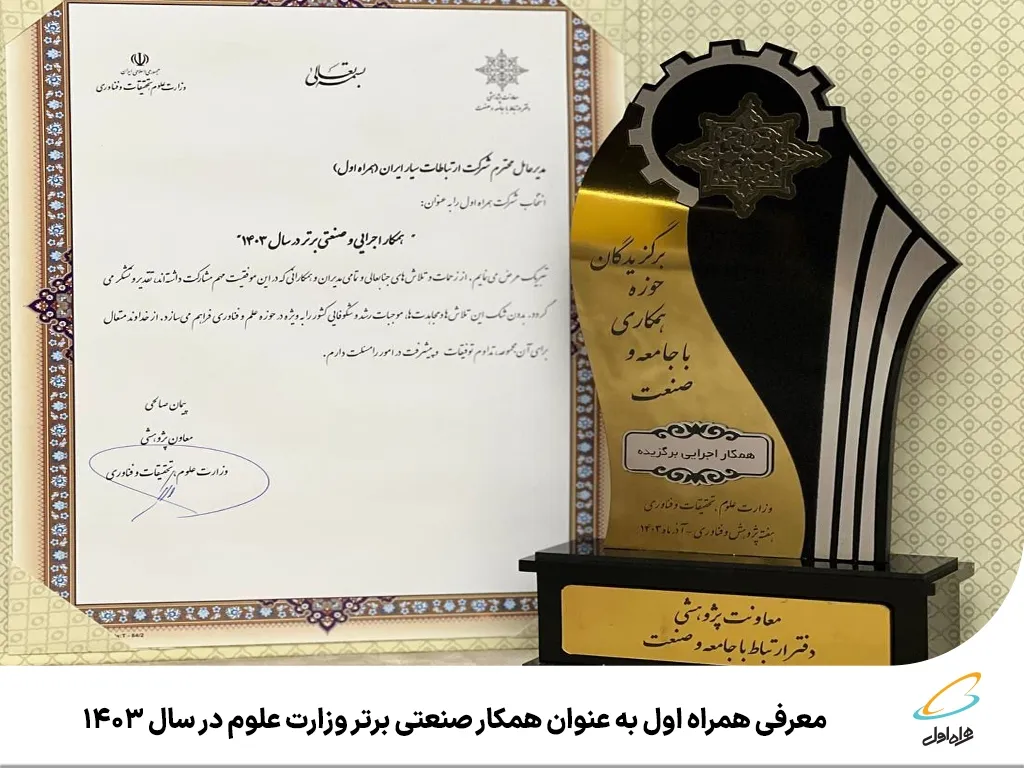 جمهوری اسلامی ایران
وزارت علوم، تحقیقات و فناوری
بسمه تعالی
معاونت پژوهشی
دفتر ارتباط با جامعه و صنعت
مدیرعامل محترم شرکت ارتباطات سیار ایران (همراه اول)
انتخاب شرکت همراه اول را به عنوان:
" همکار اجرایی و صنعتی برتر در سال ۱۴۰۳"
تبریک عرض می نمایم، از زحمات و تلاش های جنابعالی و تمامی مدیران و همکارانی که در این موفقیت مهم مشارکت داشته‌اند، تقدیر و تشکر می
گردد. بدون شک این تلاش ها و مجاهدت ها، موجبات رشد و شکوفایی کشور را به ویژه در حوزه علم و فناوری فراهم می سازد. از خداوند متعال
برای آن مجموعه، تداوم توفیقات و پیشرفت در امور را مسئلت دارم.
پیمان صالحی
معاون پژوهشی
وزارت علوم، تحقیقات و فناوری
برگزیدگان
حوزه
همکاری
با جامعه و
صنعت
همکار اجرایی برگزیده
وزارت علوم، تحقیقات و فناوری
هفته پژوهش و فناوری - آذر ماه ۱۴۰۳
معاونت پژوهشی
دفتر ارتباط با جامعه و صنعت
معرفی همراه اول به عنوان همکار صنعتی برتر وزارت علوم در سال ۱۴۰۳
همراه اول